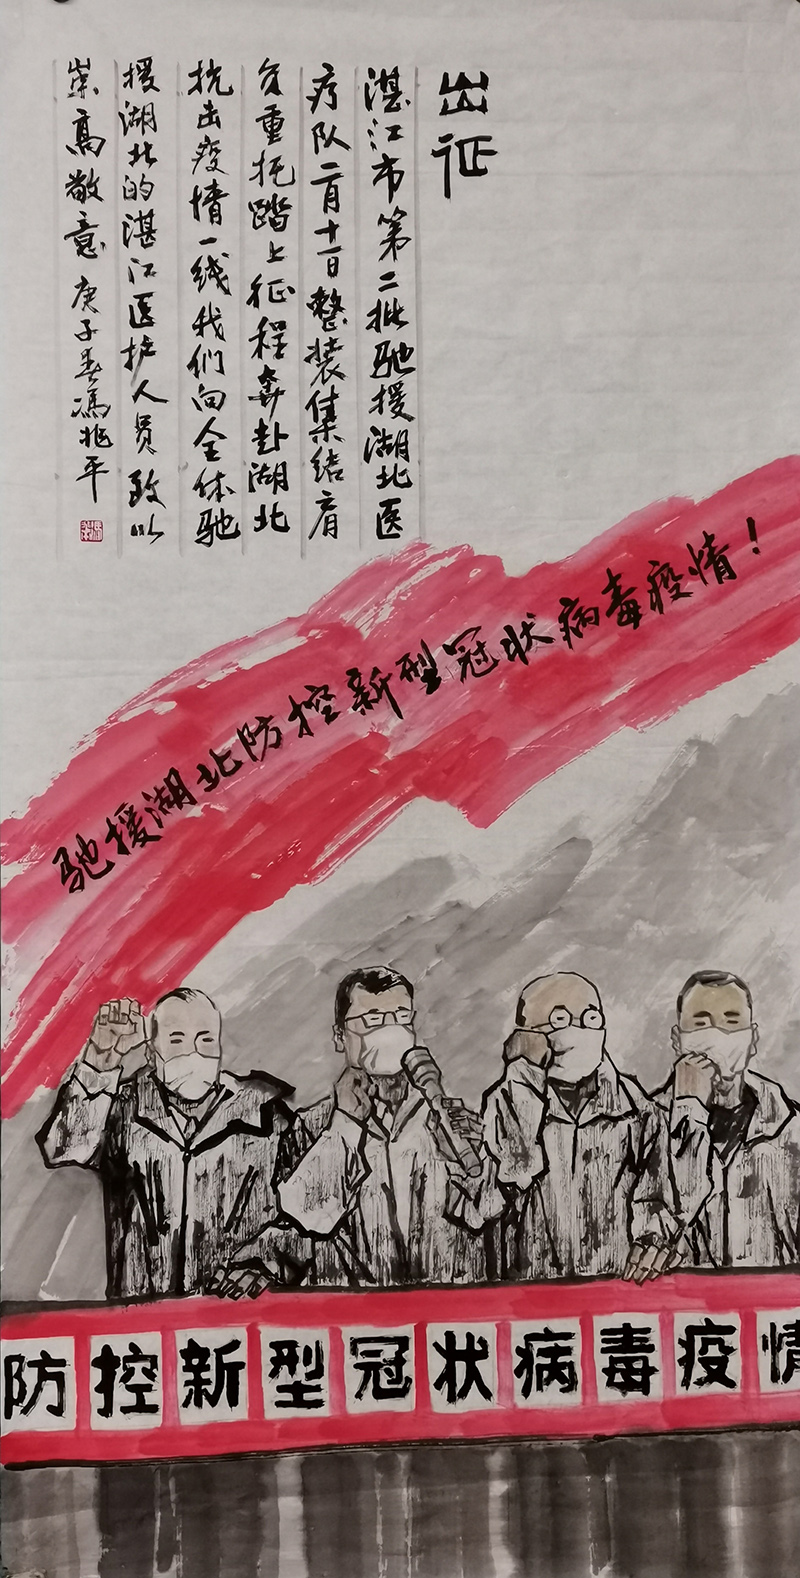 出征
湛江市第二批驰援湖北医
疗队二月十一日整装集结肩
负重托踏上征程奔赴湖北
抗击疫情一线我们向全体驰
援湖北的湛江医护人员致以
崇高敬意 庚子春冯兆平
驰援湖北防控新型冠状病毒疫情！
防控新型冠状病毒疫情